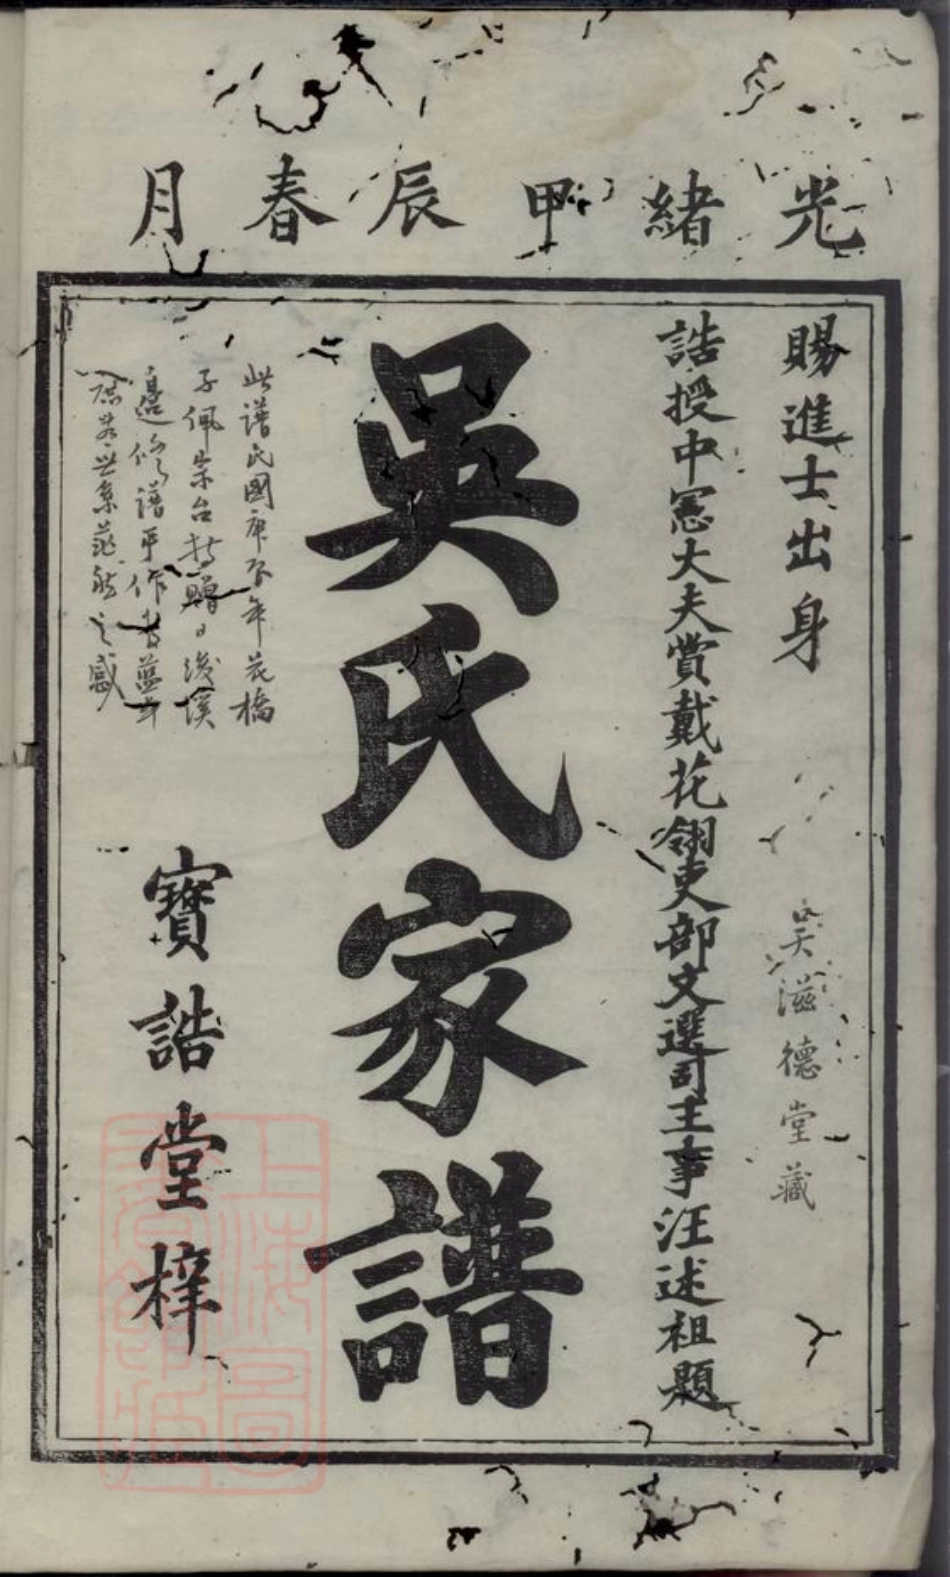 光緒甲辰春月
賜進士出身
吴滋德堂藏
誥授中憲大夫賞戴花翎吏部文選司主事汪述祖題
吳氏家譜
此譜民國庚午年花橋
子佩宗台持贈日後溪
修譜乎作者藍
世系茫然之感
寶誥堂梓
上海圖